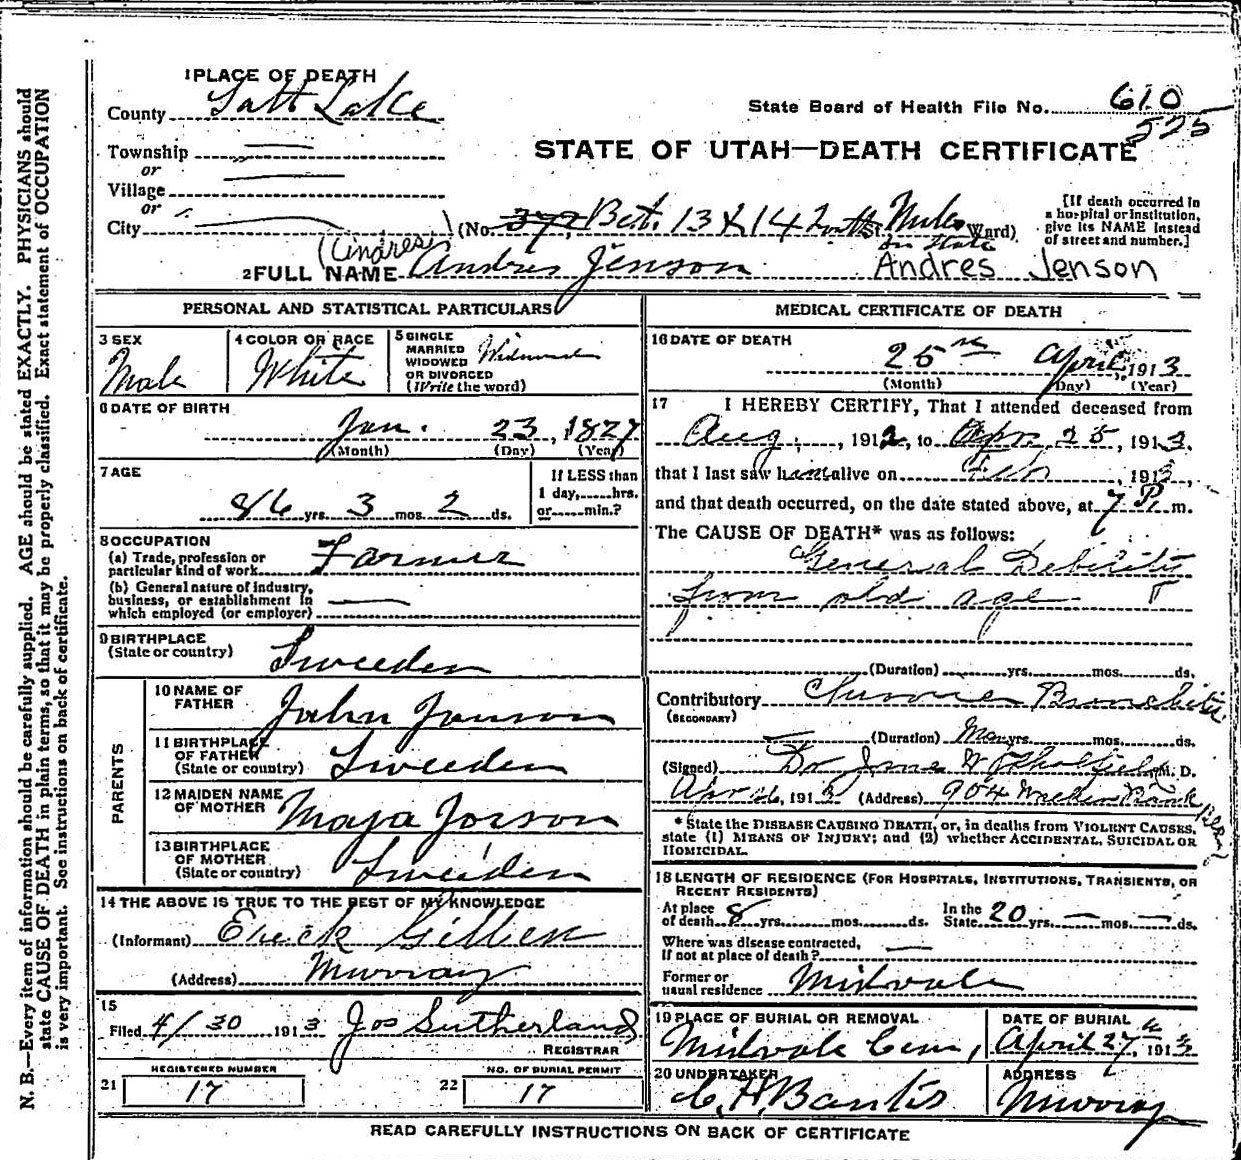 1 PLACE OF DEATH
County Salt Lake
State Board of Health File No. 610
525
Township
or
Village
or
City
STATE OF UTAH—DEATH CERTIFICATE
(No. 372, Bet. 13 & 14 St. Ward)
[If death occurred in a hospital or institution, give its NAME instead of street and number.]
(Andres)
2 FULL NAME Andris Jenson Andres Jenson
PERSONAL AND STATISTICAL PARTICULARS
3 SEX
Male
4 COLOR OR RACE
White
5 SINGLE
MARRIED
WIDOWED
OR DIVORCED
(Write the word)
Widowed
6 DATE OF BIRTH
Jan. 23, 1827
(Month) (Day) (Year)
7 AGE
86 yrs. 3 mos. 2 ds.
If LESS than
1 day, hrs.
or min.?
8 OCCUPATION
(a) Trade, profession or
particular kind of work Farmer
(b) General nature of industry,
business, or establishment in
which employed (or employer)
9 BIRTHPLACE
(State or country) Sweeden
PARENTS
10 NAME OF
FATHER John Jonson
11 BIRTHPLACE
OF FATHER
(State or country) Sweeden
12 MAIDEN NAME
OF MOTHER Maja Jonson
13 BIRTHPLACE
OF MOTHER
(State or country) Sweeden
14 THE ABOVE IS TRUE TO THE BEST OF MY KNOWLEDGE
(Informant) Erick Gillen
(Address) Murray
15
Filed 4/30 1913 Jos Sutherland
REGISTRAR
REGISTERED NUMBER
21 17
NO. OF BURIAL PERMIT
22 17
MEDICAL CERTIFICATE OF DEATH
16 DATE OF DEATH
25th April 1913
(Month) (Day) (Year)
17 I HEREBY CERTIFY, That I attended deceased from
Aug, 1912, to Apr 25, 1913.
that I last saw him alive on Feb, 1913,
and that death occurred, on the date stated above, at 7 P. m.
The CAUSE OF DEATH* was as follows:
General Debility
from old age
(Duration) yrs. mos. ds.
Contributory Chronic Bronchitis
(SECONDARY)
(Duration) Many yrs. mos. ds.
(Signed) Dr M. D.
Apr 26, 1913 (Address) 904 Walker Bank Bldg
* State the DISEASE CAUSING DEATH, or, in deaths from VIOLENT CAUSES,
state (1) MEANS OF INJURY; and (2) whether ACCIDENTAL, SUICIDAL OR
HOMICIDAL.
18 LENGTH OF RESIDENCE (FOR HOSPITALS, INSTITUTIONS, TRANSIENTS, OR
RECENT RESIDENTS)
At place
of death 8 yrs. mos. ds. In the State 20 yrs. — mos. — ds.
Where was disease contracted,
If not at place of death?
Former or
usual residence Midvale
19 PLACE OF BURIAL OR REMOVAL
Midvale Cem,
DATE OF BURIAL
April 27th, 1913
20 UNDERTAKER
C. H. Banks
ADDRESS
Murray
READ CAREFULLY INSTRUCTIONS ON BACK OF CERTIFICATE
N. B.—Every item of information should be carefully supplied. AGE should be stated EXACTLY. PHYSICIANS should
state CAUSE OF DEATH in plain terms, so that it may be properly classified. Exact statement of OCCUPATION
is very important. See instructions on back of certificate.